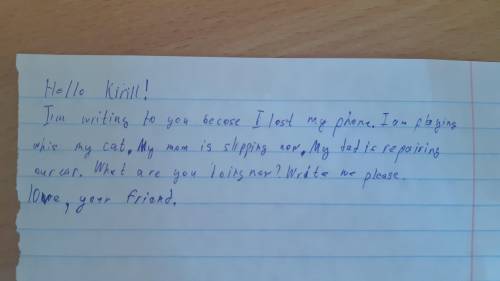 Hello Kirill!
I'm writing to you becose I lost my phone. I am playing
whie my cat. My mom is slipping now. My dad is repairing
our car. What are you doing now? Write me please.
love, your friend.